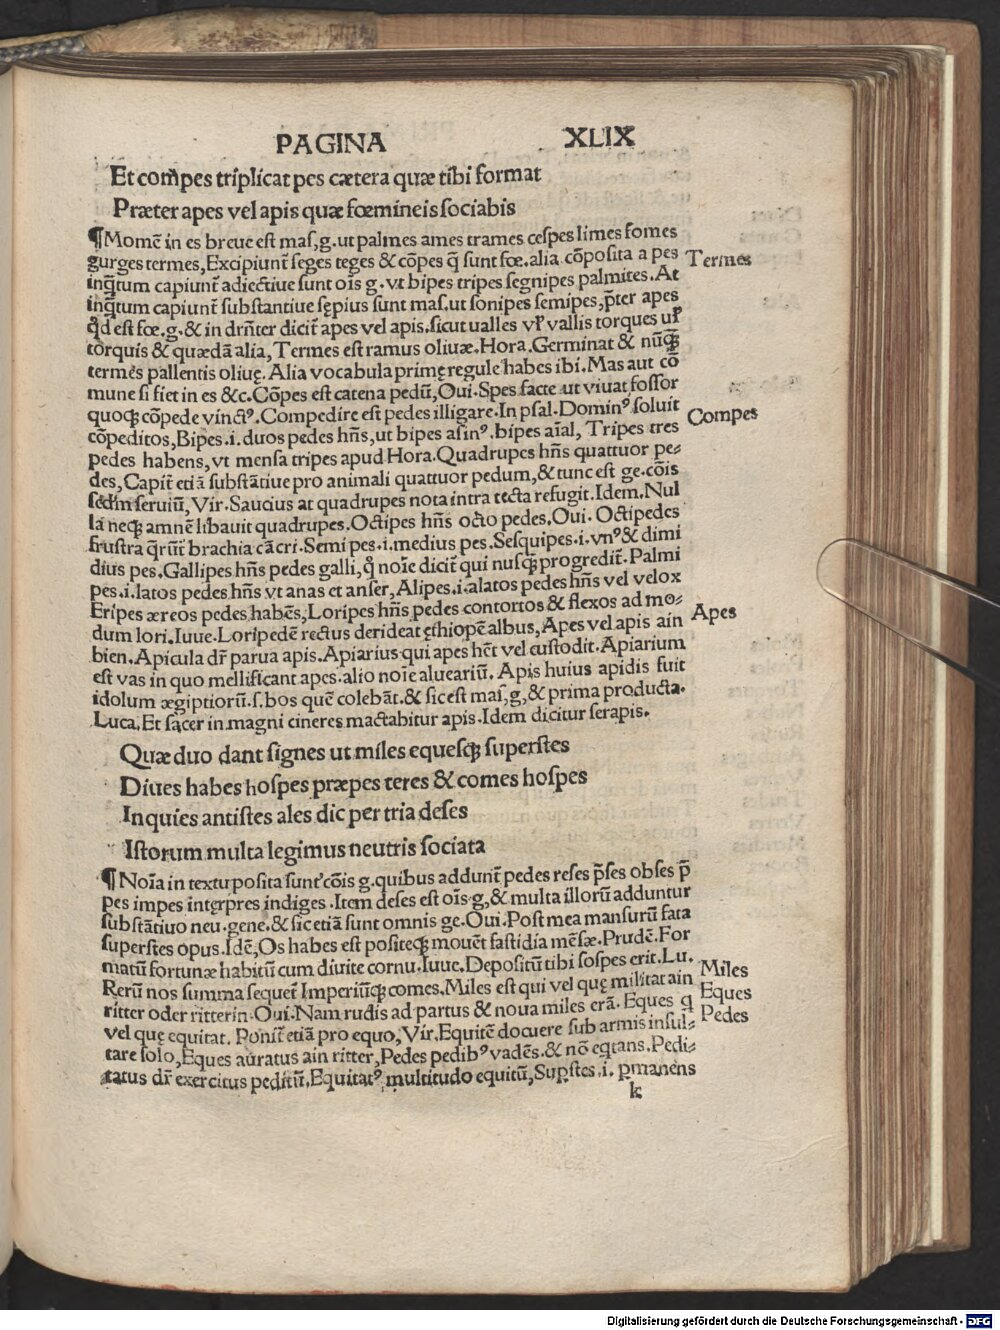 PAGINA XLIX
Et compes triplicat pes cætera quæ tibi format
Præter apes vel apis quæ fœmineis sociabis
¶ Momē in es breue est mas,g.ut palmes ames trames cespes limes fomes
gurges termes,Excipiunt̄ seges teges & cōpes q̄ sunt fœ.alia cōposita a pes
Termes
inq̄tum capiunt̄ adiectiue sunt oīs g.vt bipes tripes segnipes palmites.At
inq̄tum capiunt̄ substantiue sępius sunt mas.ut sonipes semipes,p̄ter apes
qd est fœ.g.& in drn̄ter dicit̄ apes vel apis.sicut ualles vl̓ vallis torques ul̓
torquis & quædā alia,Termes est ramus oliuæ.Hora.Germinat & nūq̄ꝫ
termes pallentis oliuę.Alia vocabula primę regule habes ibi.Mas aut cō
mune si fiet in es &c.Cōpes est catena pedū,Oui.Spes facte ut viuat fossor
quoqꝫ cōpede vinctꝰ.Compedire est pedes illigare.In psal.Dominꝰ soluit
Compes
cōpeditos,Bipes.i.duos pedes hn̄s,ut bipes asinꝰ.bipes aīal, Tripes tres
pedes habens,vt mensa tripes apud Hora.Quadrupes hn̄s quattuor pe-
des,Capit̄ etiā substātiue pro animali quattuor pedum,& tunc est ge.cōis
sedm seruiū,Vir.Saucius at quadrupes nota intra tecta refugit.Idem.Nul
la neqꝫ amnē libauit quadrupes.Octipes hn̄s octo pedes.Oui. Octipedes
frustra q̄rūt̄ brachia cācri.Semi pes.i.medius pes.Sesquipes.i.vnꝰ & dimi
dius pes.Gallipes hn̄s pedes galli,q̄ noīe dicit̄ qui nusq̄ꝫ progredit̄.Palmi
pes.i.latos pedes hn̄s vt anas et anser,Alipes.i.alatos pedes hn̄s vel velox
Eripes æreos pedes habēs,Loripes hn̄s pedes contortos & flexos ad mo-
Apes
dum lori.Iuue.Loripedē rectus derideat ęthiopē albus,Apes vel apis ain
bien.Apicula dr̄ parua apis.Apiarius qui apes hēt vel custodit.Apiarium
est vas in quo mellificant apes.alio noīe alueariū. Apis huius apidis fuit
idolum ægiptiorū.s.bos quē colebāt.& sic est mas,g,& prima producta.
Luca.Et sacer in magni cineres mactabitur apis.Idem dicitur serapis.
Quæ duo dant signes ut miles equesqꝫ superstes
Diues habes hospes præpes teres & comes hospes
Inquies antistes ales dic per tria deses
Istorum multa legimus neutris sociata
¶ Noīa in textu posita sunt cōis g.quibus addunt̄ pedes reses p̄ses obses p̄
pes impes interpres indiges.Item deses est oīs g,& multa illorū adduntur
substātiuo neu.gene.& sic etiā sunt omnis ge.Oui.Post mea mansurū fata
superstes opus.Idē,Os habes est positeqꝫ mouēt fastidia mēsæ.Prudē.For
matū fortunæ habitū cum diuite cornu.Iuue.Depositū tibi sospes erit.Lu.
Rerū nos summa sequet̄ Imperiūqꝫ comes.Miles est qui vel quę militat ain
Miles
ritter oder ritterin.Oui.Nam rudis ad partus & noua miles erā.Eques q̄
Eques
vel quę equitat. Ponit̄ etiā pro equo,Vir.Equitē docuere sub armis insul-
Pedes
tare solo,Eques auratus ain ritter,Pedes pedibꝰ vadēs.& nō eqtans.Pedi-
tatus dr̄ exercitus peditū.Equitatꝰ multitudo equitū,Supstes.i. pmanens
k
Digitalisierung gefördert durch die Deutsche Forschungsgemeinschaft - DFG